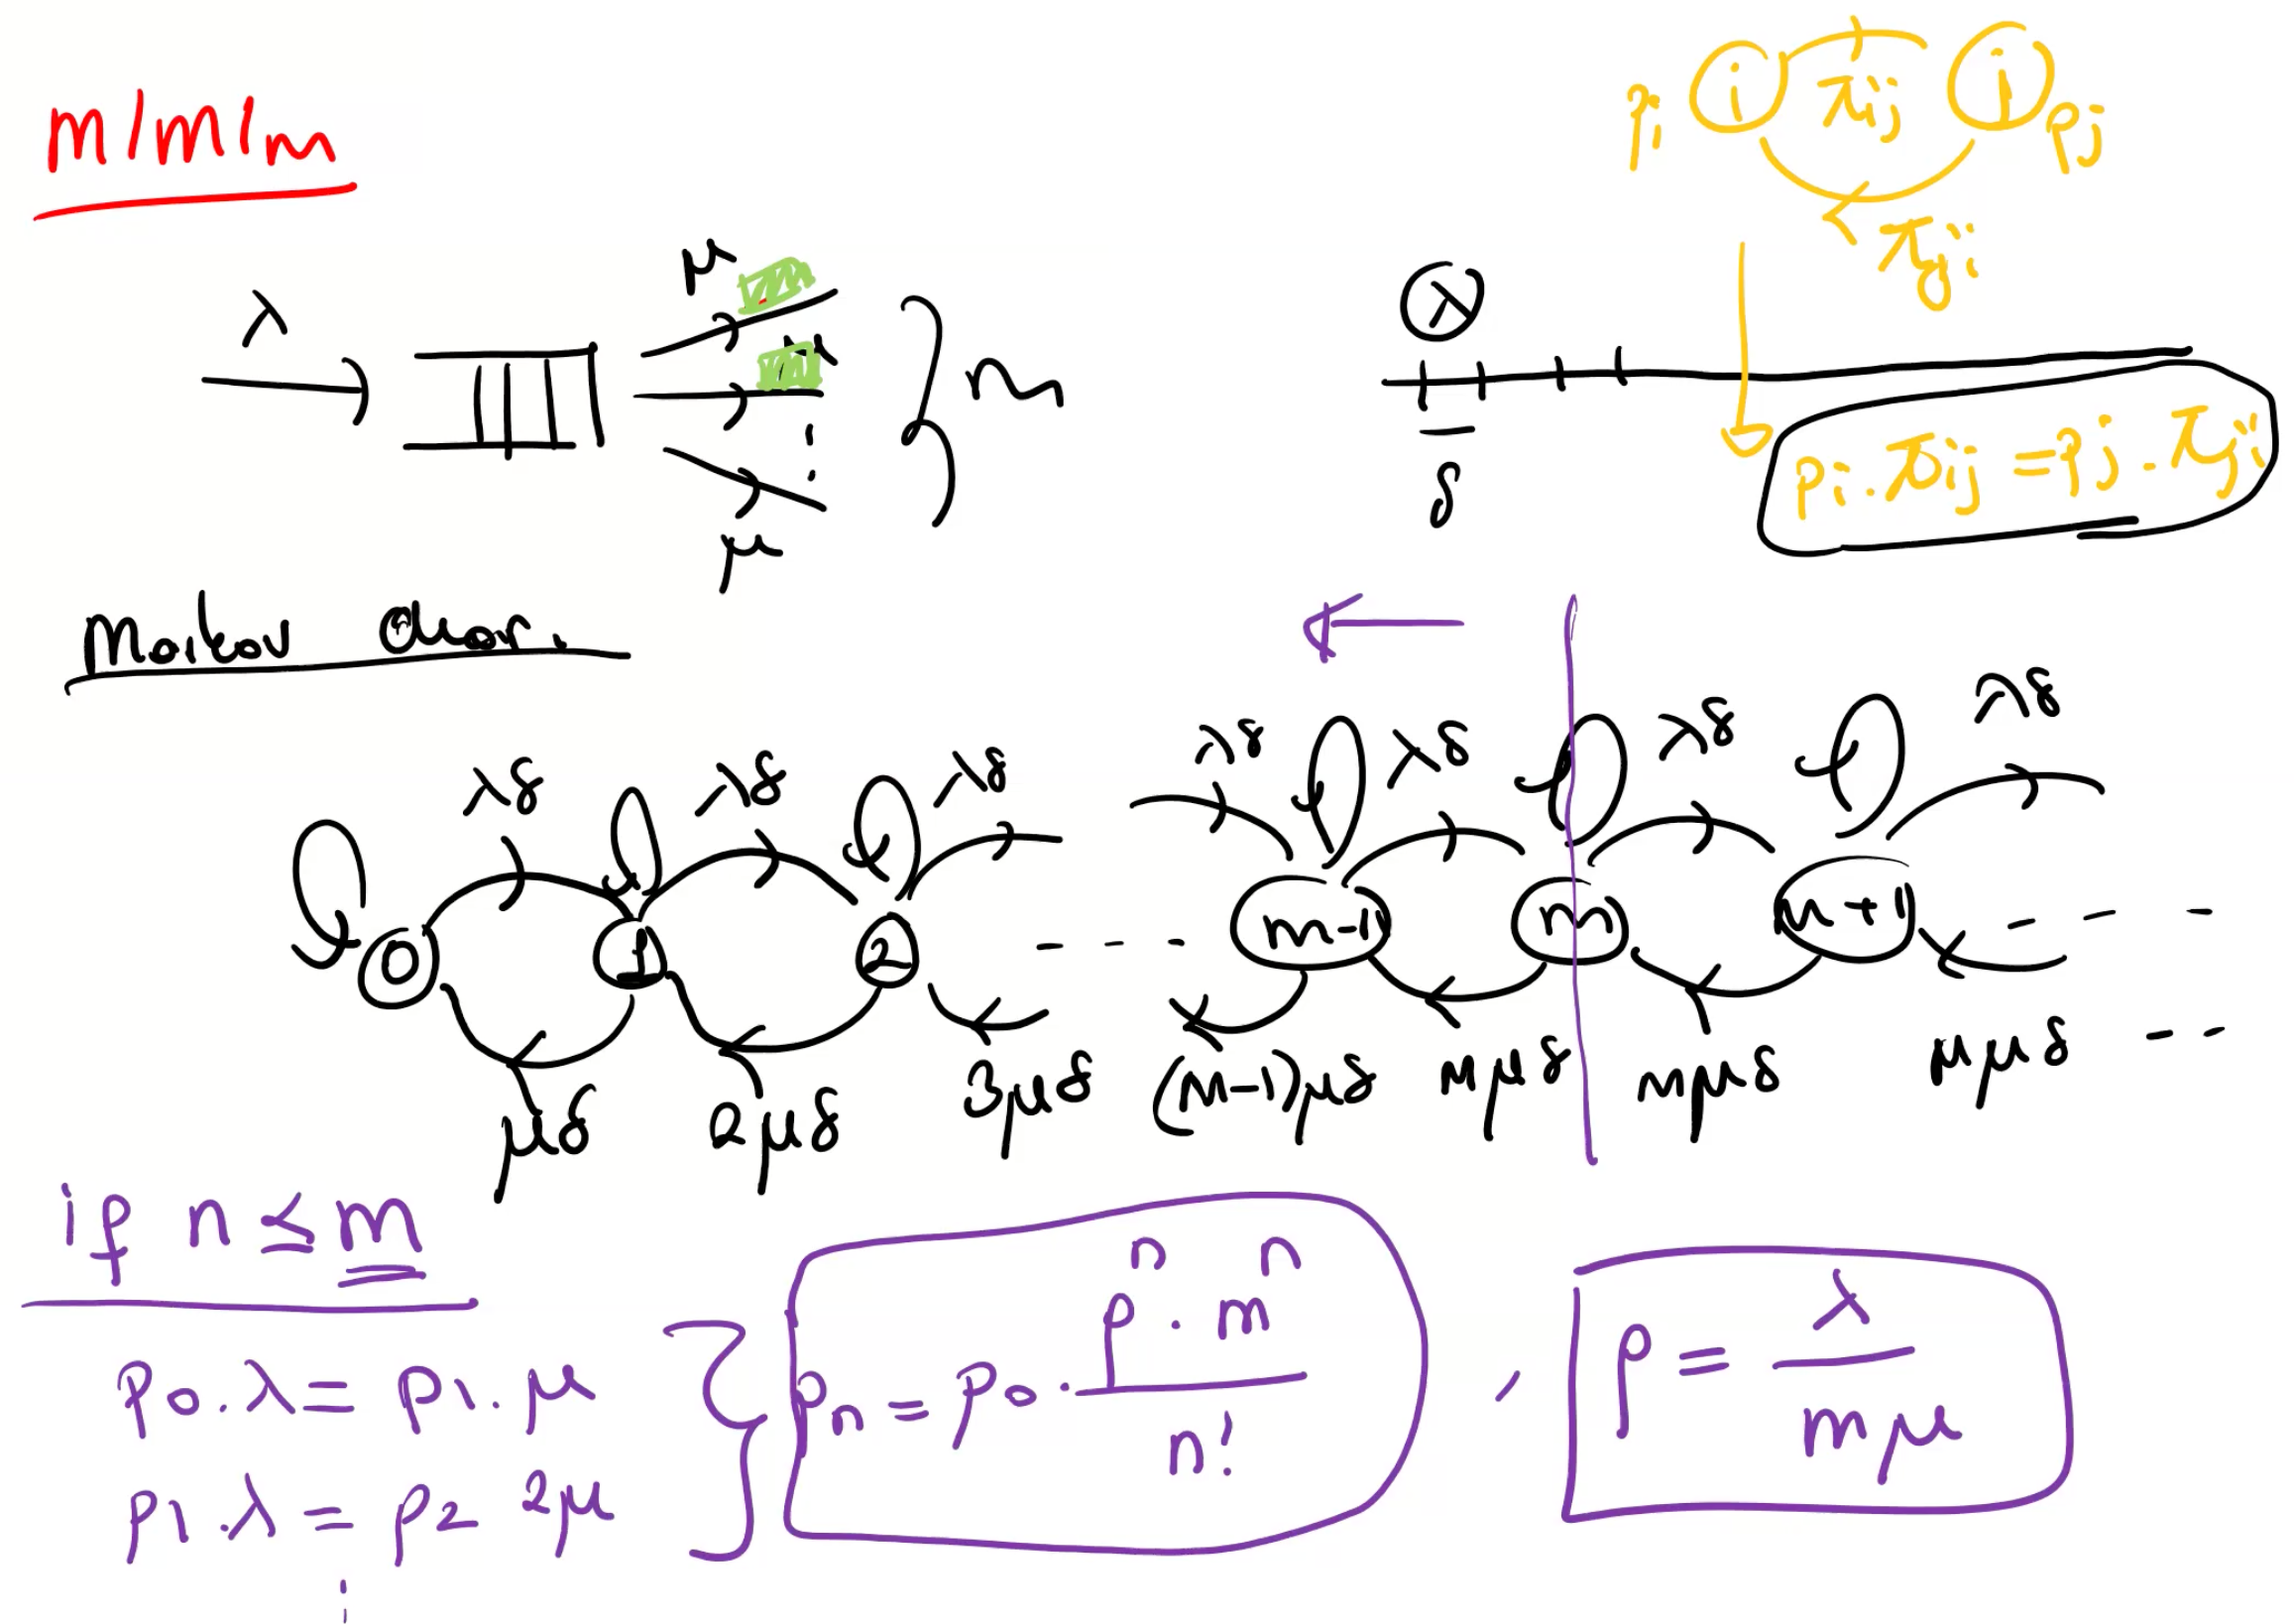 m/m/m
p_i i π_ij j p_j
π_ji
λ
μ
μ
μ
m
λ
δ
p_i . π_ij = p_j . π_ji
Markov Char.
λδ λδ λδ λδ λδ λδ λδ
0 1 2 - - - m-1 m m+1 - - -
μδ 2μδ 3μδ (m-1)μδ mμδ mμδ mμδ - -
if n ≤ m
p_0 . λ = p_1 . μ
p_1 . λ = p_2 2μ
p_n = p_0 . ρ^n . m^n / n! , ρ = λ / mμ